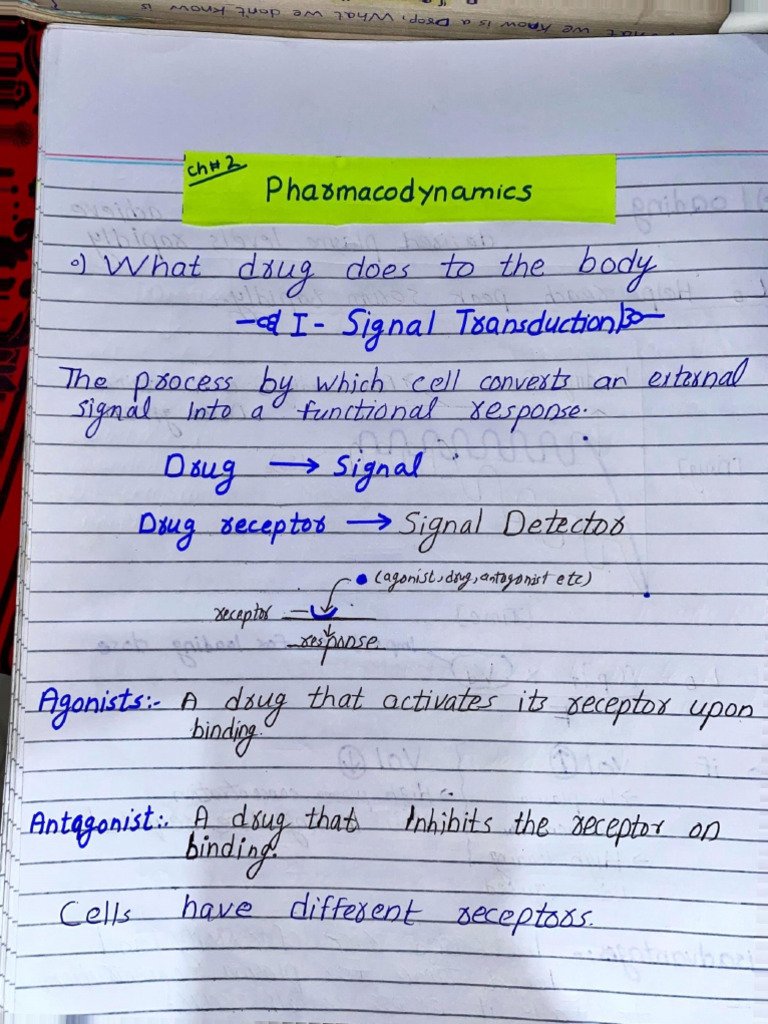 what we know is a Drop, What we don't know is
ch# 2
Pharmacodynamics
o) What drug does to the body
I - Signal Transduction
The process by which cell converts an external
signal into a functional response.
Drug → Signal
Drug receptor → Signal Detector
(agonist, drug, antagonist etc)
receptor
response
Agonists:- A drug that activates its receptor upon
binding.
Antagonist:- A drug that Inhibits the receptor on
binding.
Cells have different receptors.